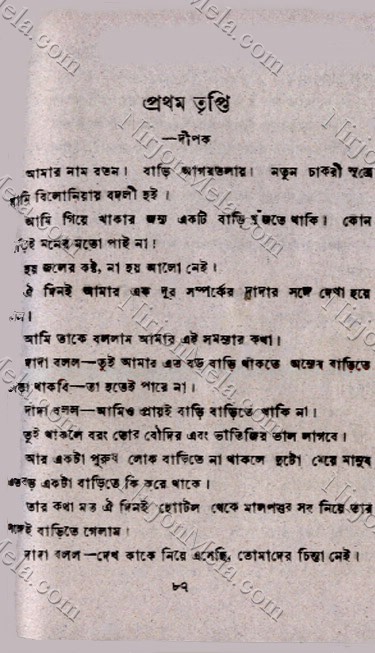 প্রথম তৃপ্তি
—দীপক
আমার নাম রতন। বাড়ি আগরতলায়। নতুন চাকরী সূত্রে
আমি বিলোনিয়ায় বদলী হই।
আমি গিয়ে থাকার জন্য একটি বাড়ি খুঁজতে থাকি। কোন
মনের মতো পাই না!
হয় জলের কষ্ট, না হয় আলো নেই।
ঐ দিনই আমার এক দূর সম্পর্কের দাদার সঙ্গে দেখা হয়ে
।
আমি তাকে বললাম আমার এই সমস্যার কথা।
দাদা বলল—তুই আমার এত বড় বাড়ি থাকতে অন্যের বাড়িতে
থাকবি—তা হতেই পারে না।
দাদা বলল—আমিও প্রায়ই বাড়ি বাড়িতে থাকি না।
তুই থাকলে বরং তোর বৌদির এবং ভাতিজির ভাল লাগবে।
আর একটা পুরুষ লোক বাড়িতে না থাকলে দুটো মেয়ে মানুষ
এতবড় একটা বাড়িতে কি করে থাকে।
তার কথা মত ঐ দিনই হোটেল থেকে মালপত্তর সহ নিয়ে তার
সঙ্গেই বাড়িতে গেলাম।
দাদা বলল—দেখ কাকে নিয়ে এসেছি, তোমাদের চিন্তা নেই।
৮৭
NirjonMela.com